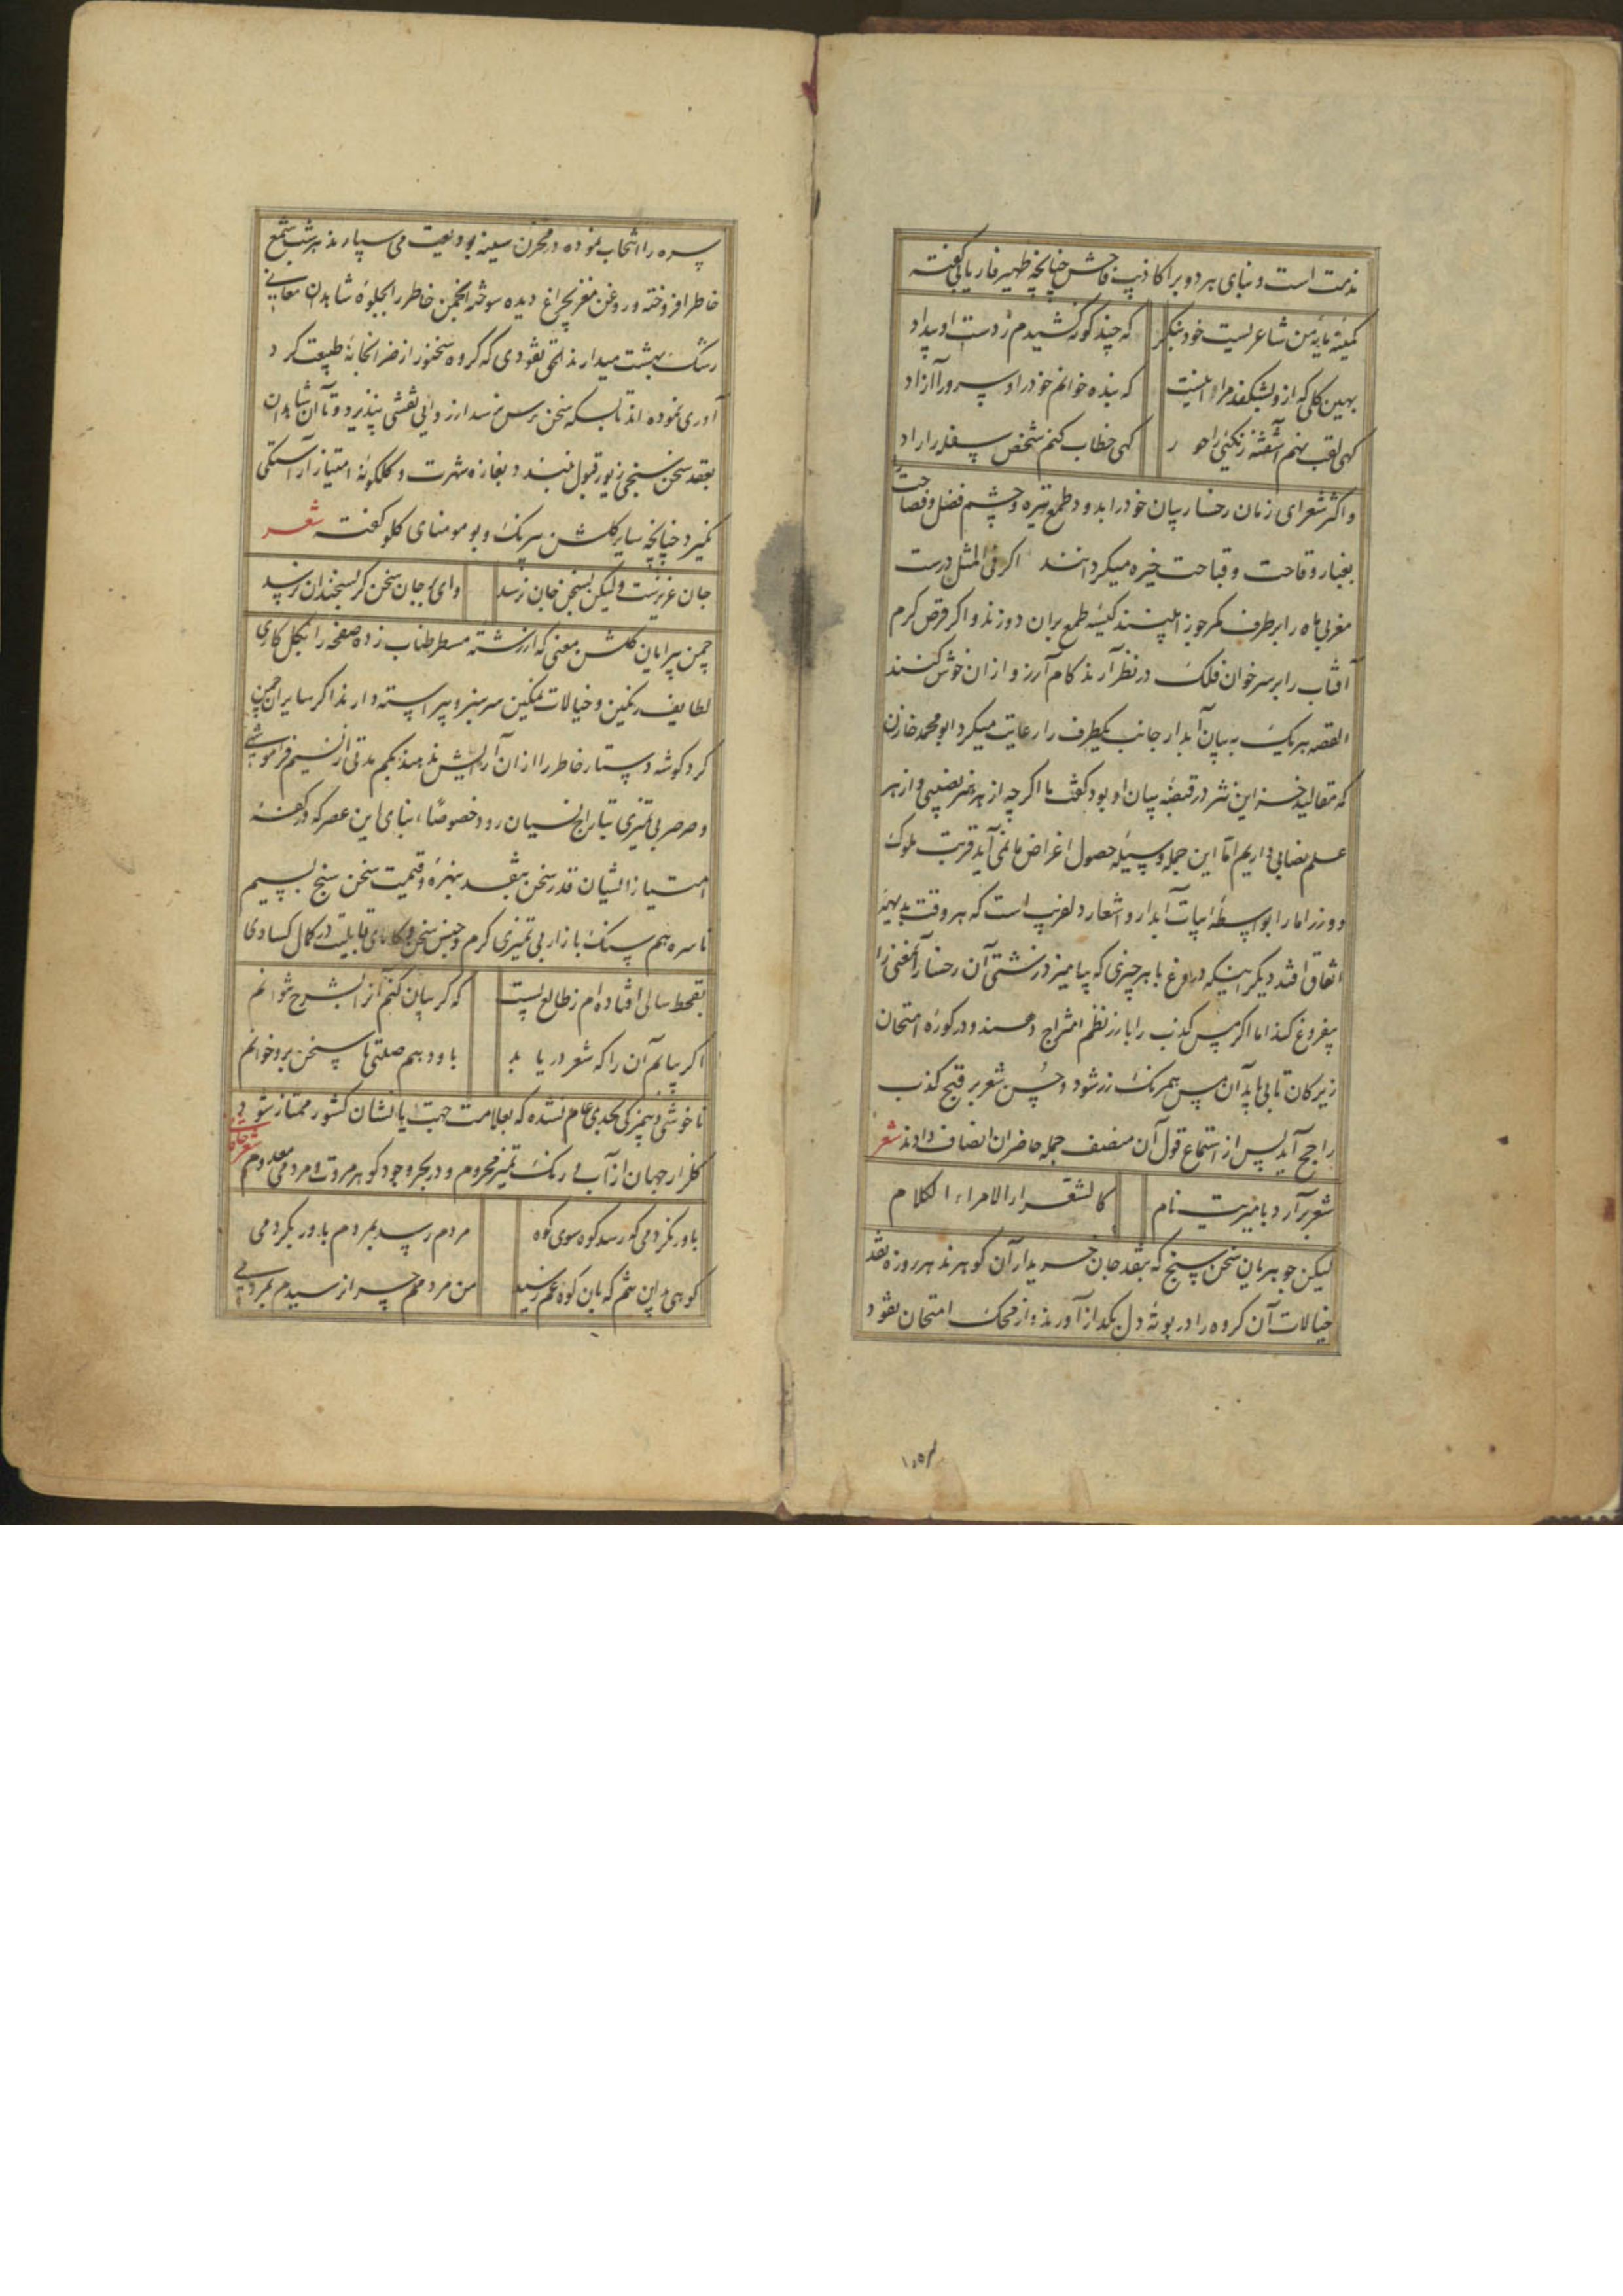 مذمت است و بنای هر دو بر اکاذیب فاحش چنانچه ظهیر فاریابی گفته
کمینه مایه من شاعریست خود بنگر که چند گونه کشیدم ز دست او بیداد
بهین گلی که ازو بشکفد مرا اینست که بنده خوانم خود را و سرو را آزاد
گهی لقب نهم آشفته زنگیی را حور گهی خطاب کنم شخص سفله را راد
و اکثر شعرای زمان رخسار بیان خود را بدود طمع تیره و چشم فضل و فصاحت را
بغبار وقاحت و قباحت خیره میگردانند اگر فی المثل درست
مغربی ماه را بر طرف کمر جوزا بینند کیسه طمع بران دوزند و اگر قرص گرم
آفتاب را بر سر خوان فلک در نظر آرند کام آرزو ازان خوش کنند
القصه هر یک به بیان آبدار جانب یکطرف را رعایت میکرد ابو محمد خازن
که مقالید خزاین نثر در قبضه بیان او بود گفت ما اگر چه از هر هنر نصیبی و از هر
علم نصابی داریم اما این جمله وسیله حصول اغراض ما نمی آید قربت ملوک
و وزرا ما را بواسطه ابیات آبدار و اشعار دلفریب است که هر وقت بدیهه
اتفاق افتد دیگر اینکه دروغ با هر چیزی که بیامیزد زشتی آن رخسار آنمعنی را
بیفروغ کند اما اگر مس کذب را با زر نظم امتزاج دهند و در کوره امتحان
زیرکان تابی یابد آن مس همرنگ زر شود و حسن شعر بر قبح کذب
راجح آید پس از استماع قول آن منصف جمله حاضران انصاف دادند شعر
شعر برآرد بامیریت نام کالشعرا امراء الکلام
لیکن جوهریان سخن سنج که بنقد جان خریدار آن گوهرند هر روزه نقد
خیالات آن گروه را در بوته دل بگداز آورند و از محک امتحان نقود
سره را انتخاب نموده در مخزن سینه بودیعت می سپارند هر شب شمع
خاطر افروخته و روغن مغز بچراغ دیده سوخته انجمن خاطر را بجلوه شاهدان معانی
رشک بهشت میدارند الحق نقودی که گروه سخنور از ضرابخانه طبیعت گرد
آوری نموده اند تا بسکه سخن رس نرسد ارزوایی نقشی نپذیرد و تا آن شاهدان
بعقد سخن سنجی زیور قبول نبندد بغازه شهرت و گلگونه امتیاز آراستگی
نگیرد چنانچه سایر گلشن بیرنگ و بو مومنای گلو گفته شعر
جان عزیزست ولیکن بسخن جان نرسد وای بر جان سخن گر بسخندان نرسد
چمن پیرایان گلشن معنی که از رشته مسطر طناب زده صفحه را بگل کاری
لطایف رنگین و خیالات نمکین سرسبز و پیراسته دارند اگر سایر این چمن
گرد گوشه دستار خاطر را ازان آرایش ندهند بکم مدتی از نسیم فراموشی
و صرصر بی تمیزی بتاراج نسیان رود خصوصاً ابنای این عصر که در کفه
امتیاز ایشان قدر سخن بنقد بهره و قیمت سخن سنج بسیم
ناسره هم سنگ بازار بی تمیزی گرم و جنس سخن و کالای قابلیت در کمال کسادی
بقحط سالی افتاده ام ز طالع پست که گر بیان کنم آنرا بشرح نتوانم
اگر بیابم آن را که شعر دریابد باو دهم صلتی تا سخن برو خوانم
ناخوشی و بیمزگی بحدی عام نشده که بعلامت جهت یابنشان کشور ممتاز شود
گلزار جهان از آب و رنگ تمیز محروم و در بحر وجود گوهر مروت و مردمی معدوم شعر
باور نکردمی که رسد کوه سوی کوه مردم رسد بمردم باور بکردمی
کوهی بد این تنم که بان کوه غم رسید من مردمم چرا نرسیدم بمردمی